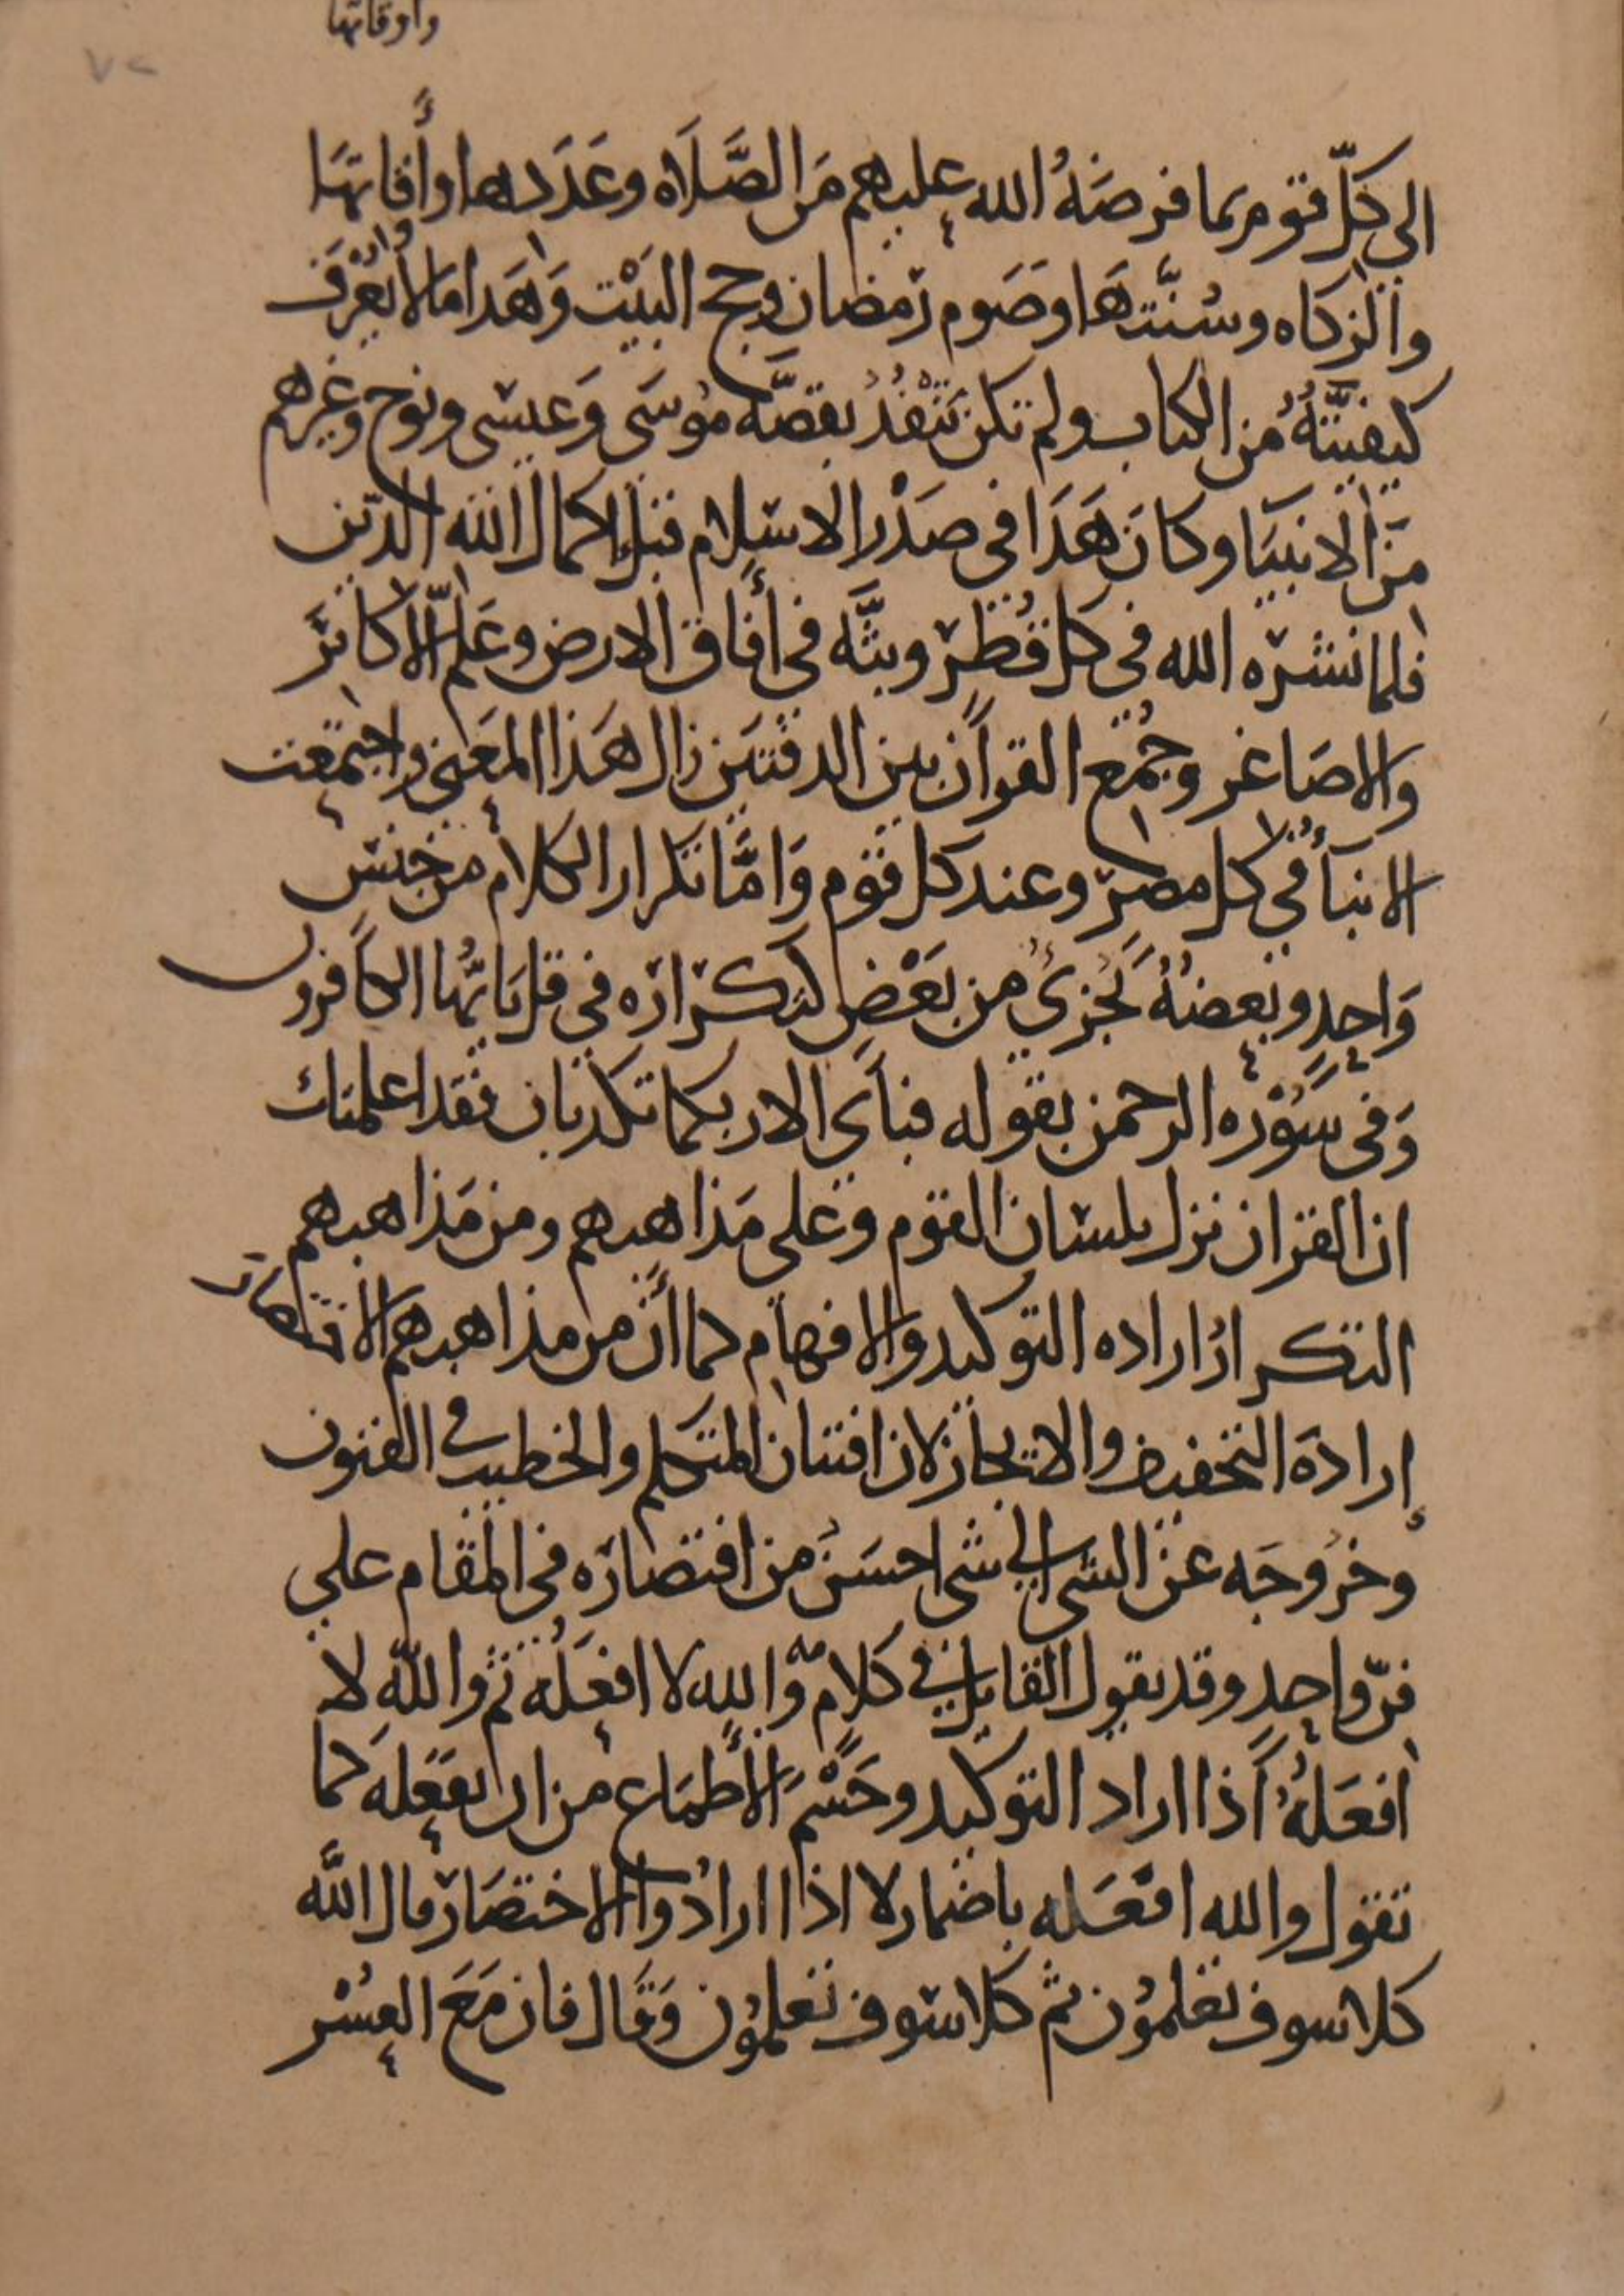 واوقاتها
٧٢
الى كلّ قوم بما فرضهُ الله عليهم مَن الصَّلَاه وعَدَدها وأَقاتهَا
والزكاه وسُنَّتهَا وصَوم رَمضان وحج البَيْت وَهَدا ما لا يُعْرَف
كيفيَّتهُ من الكتاب ولم تكن تَنْفُذُ بقصَّه موُسَى وَعيسى ونوح وغيرهم
مَن الانبيَا وكانَ هَذَا فى صَدْر الاسلام قبل اكمال الله الدّين
فلما نشرَه الله في كل قُطْرٍ وبثَّه في أَفاق الارض وعَلم الأكابرَ
والاصَاغر وجُمع القرآن بين الدفتيَن زال هَذا المعَنى واجتمعت
الانبَأُ في كل مصرٍ وعند كل قوم وَامَّا تكرار الكلام من جنس
وَاحدٍ وبَعضهُ يُجزىُ من بَعْضٍ كتكرارَه فى قل يَايُّها الكَافرون
وَفى سُوْرَه الرحمن بقوله فبأى الا ربكما تكذبان فقد اعلمتك
ان القران نزل بلسَان القوم وعلى مَذاهبهم ومن مَذاهبهم
التكرارُ اراده التوكيد والافهام كما أنَّ من مذاهبهم الاختصَار
إرادَة التخفيف والايجاز لان افتنان المتكلم والخطيب في الفنون
وخرُوجَه عن الشى الي شى احسَن من اقتصَارَه في المقام علي
فنّ واحدٍ وقد يقول القايل في كلامه واللهِ لا افعَلُه ثم واللّه لا
افعَلهُ اذا اراد التوكيد وحَسْم الأَطماع من ان يفعَله كما
تقول والله افعَله باضمار لا اذا ارادُوا الاختصَار قال اللَّه
كلا سوف تعلمُون ثم كلا سَوف تعلمُون وَقَال فان مَعَ العُسْر